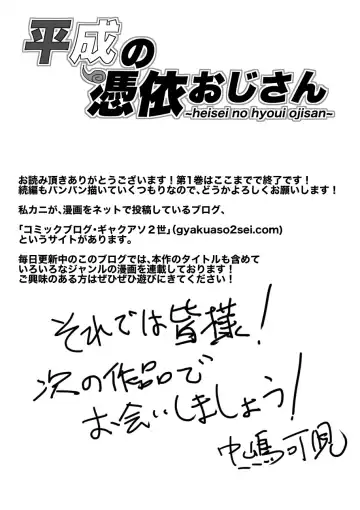 平成の
憑依おじさん
~heisei no hyoui ojisan~
お読み頂きありがとうございます！第1巻はここまでで終了です！
続編もバンバン描いていくつもりなので、どうかよろしくお願いします！
私カニが、漫画をネットで投稿しているブログ、
「コミックブログ・ギャクアソ２世」(gyakuaso2sei.com)
というサイトがあります。
毎日更新中のこのブログでは、本作のタイトルも含めて
いろいろなジャンルの漫画を連載しております！
ご興味のある方はぜひぜひ遊びにきてください！
それでは皆様！
次の作品で
お会いしましょう！
中嶋可児